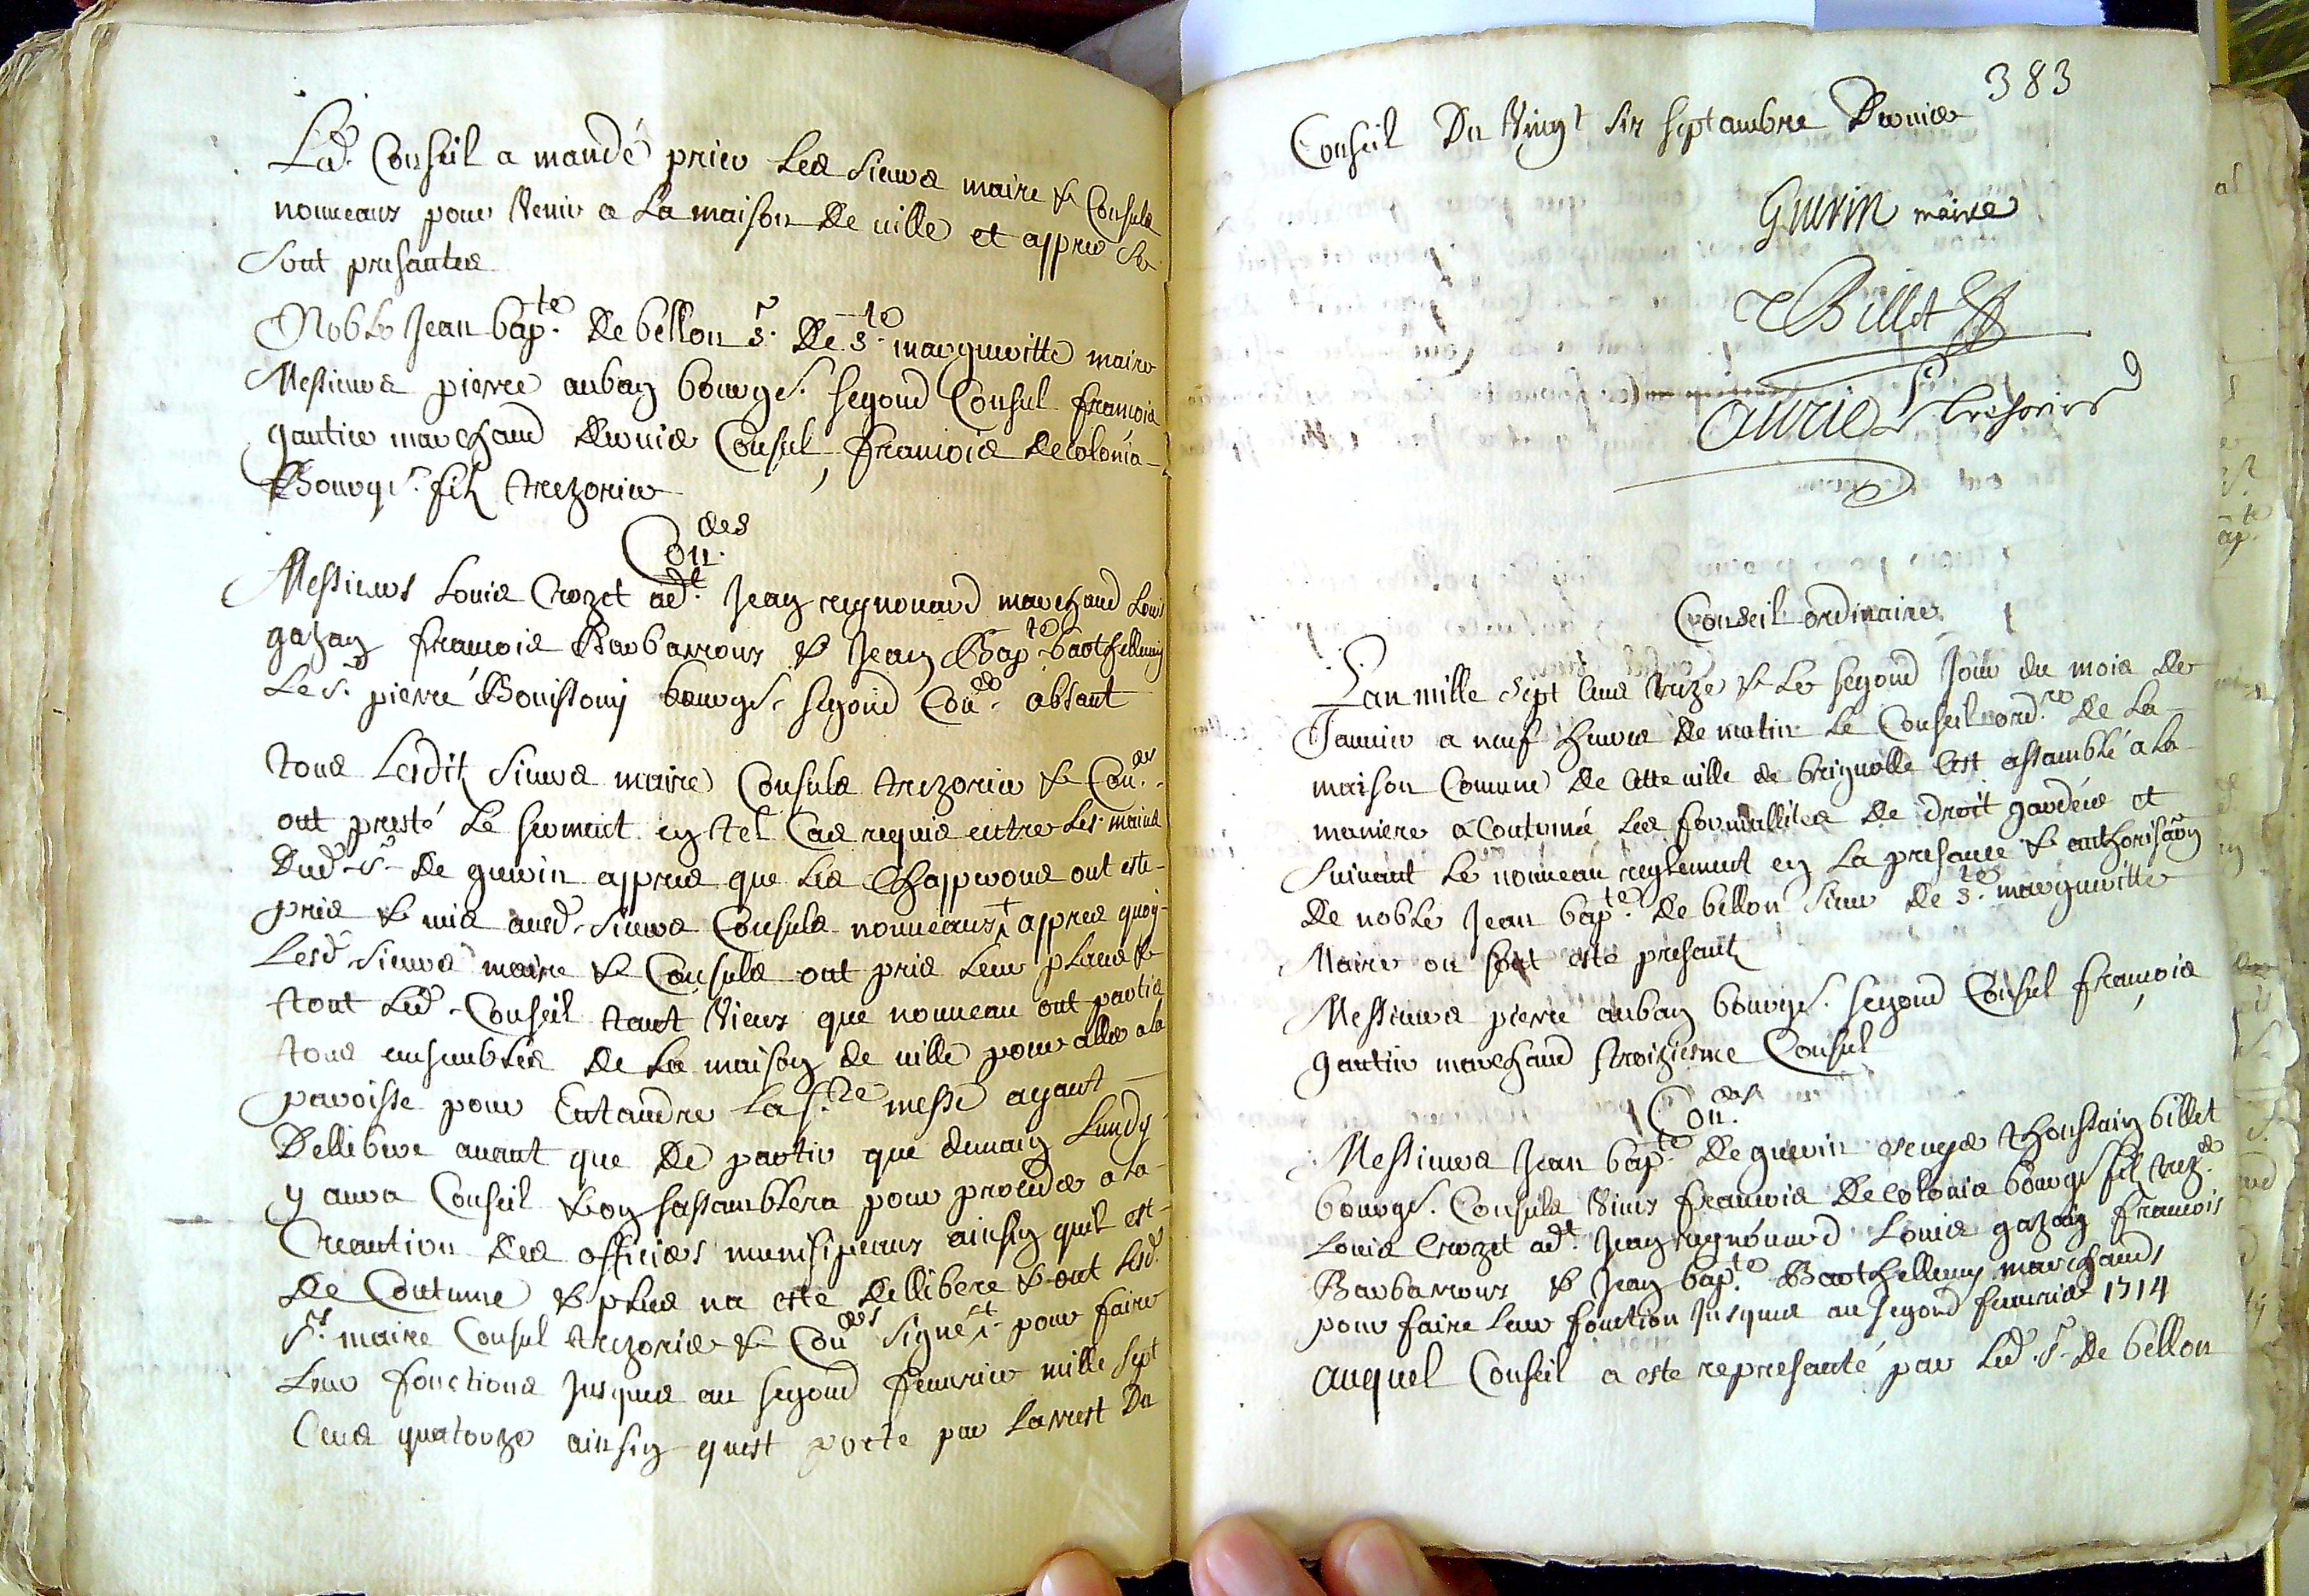 Led. Conseil a mandé prier les sieurs maire & Consuls
nouveaux pour venir a la maison de ville et appres se
sont presantes
Noble Jean bap.te de bellon s.r de s.te margueritte maire
Messieurs pierre auban bourgs. segond Consul francois
gautier marchand dernier Consul, francois de colonia
Bourgs. filz trezorier
Con.ers
Messieurs Louis Crozet adt. Jean reynouard marchand Louis
gazan francois Barbarroux & Jean Bap.te barthellemy
Le s.r pierre Bouissony bourgs. segond Con.er absant
tous Lesditz sieurs maire Consuls trezorier & Con.ers
ont presté le serment en tel Cas requis entre les mains
dud. s.r de guerin appres que les Chapperons ont este
pris & mis ausd. sieurs Consuls nouveaux appres quoy
Lesd. sieurs maire & Consuls ont pris leur place &
tout led. Conseil tant vieux que nouveau ont partis
tous ensembles de la maison de ville pour aller a la
parroisse pour Entandre la s.te messe ayant
dellibere avant que de partir que demain Lundy
y aura Conseil & on sassamblera pour proceder a la
Creaution des officiers munisipeaux ainsin quil est
de Coutume & plus na este dellibere & ont lesd.
s.rs maire Consul trezorier & Con.ers signé pour faire
Leur fonctions jusques au segond feuvrier mille sept
Cens quatorze ainsin quest porté par Larrest du
383
Conseil du vingt six septambre dernier
Guerin maire
Billet
aurie tresorier
Conseil ordinaire
Lan mille sept Cens treze & le segond Jour du mois de
Janvier a neuf heures de matin le Conseil ord.re de la
maison Comune de Cette ville de brignolle Cest assamblé a la
maniere a Coutumée les formallites de droit gardées et
suivant le nouveau reglement en la presance & authorisaõn
de noble Jean bap.te de bellon sieur de s.te margueritte
Maire ou sont este presantz
Messieurs pierre auban bourgs. segond Consul francois
gautier marchand troizieme Consul
Con.ers
Messieurs Jean bap.te de guerin thoussain billet
bourgs. Consuls vieux francois de colonia bourgs filz trez.er
Louis Crozet adt. Jean reynouard Louis gazan francois
Barbarroux & Jean bap.te Barthellemy marchands
pour faire leur fonction jusques au segond feuvrier 1714
auquel Conseil a este represanté par led. s.r de bellon